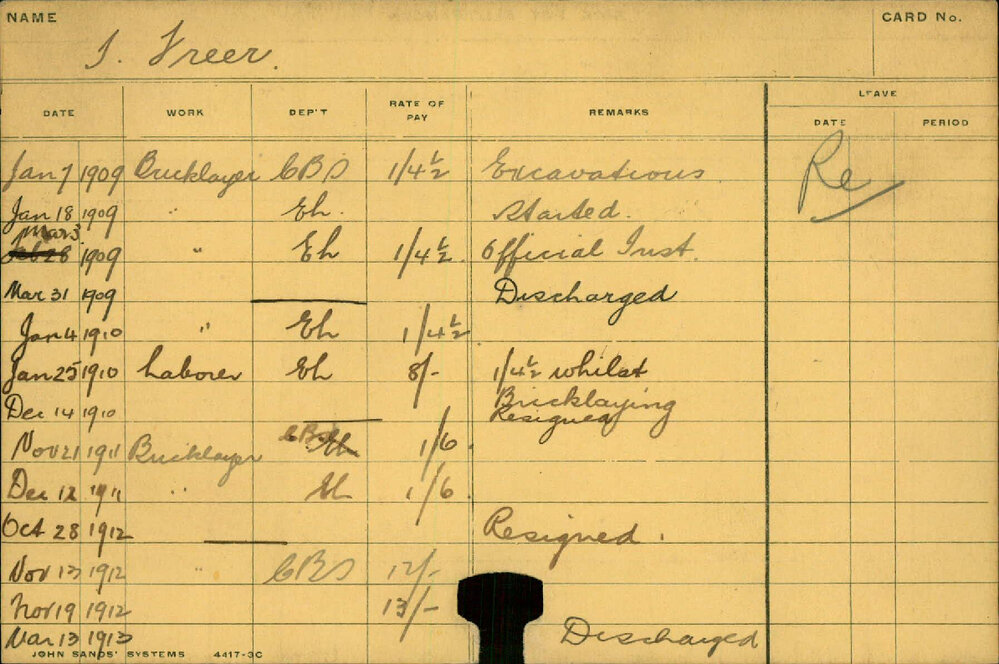 NAME
CARD No.
J. Freer.
DATE WORK DEP'T RATE OF PAY REMARKS LEAVE
DATE PERIOD
Re
Jan 7 1909 Bricklayer CBS 1/4½ Excavations
Jan 18 1909 " Eh. Started.
Mar 3
Feb 28 1909 " Eh 1/4½. Official Inst.
Mar 31 1909 Discharged
Jan 4 1910 " Eh 1/4½
Jan 25 1910 Laborer Eh 8/- 1/4½ whilst
Bricklaying
Dec 14 1910 Resigned
Nov 21 1911 Bricklayer CBS Eh 1/6.
Dec 12 1911 " Eh 1/6.
Oct 28 1912 Resigned.
Nov 13 1912 " CBS 12/-
Nov 19 1912 13/-
Mar 13 1913 Discharged
JOHN SANDS' SYSTEMS 4417-3C